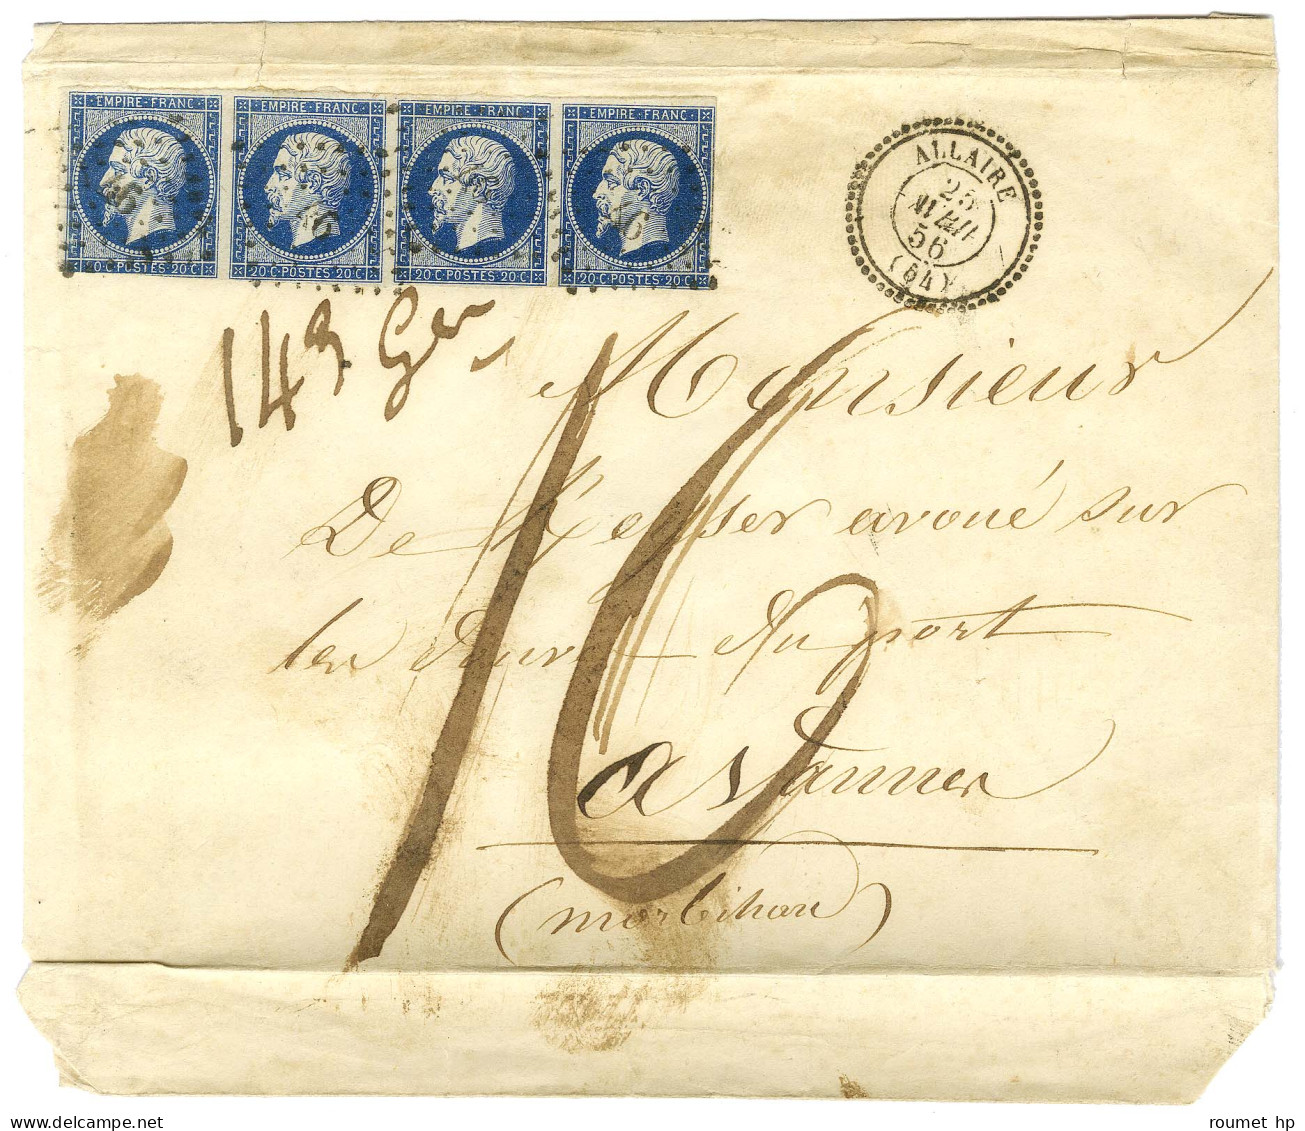 EMPIRE·FRANC· EMPIRE·FRANC· EMPIRE·FRANC· EMPIRE·FRANC·
20·C·POSTES·20·C· 20·C·POSTES·20·C· 20·C·POSTES·20·C· 20·C·POSTES·20·C·
46
ALLAIRE
25
56
(54)
149 Gr
16
Monsieur
De Keyser avoué sur
les Douves du port
a Vannes
(morbihan)
roumet hp